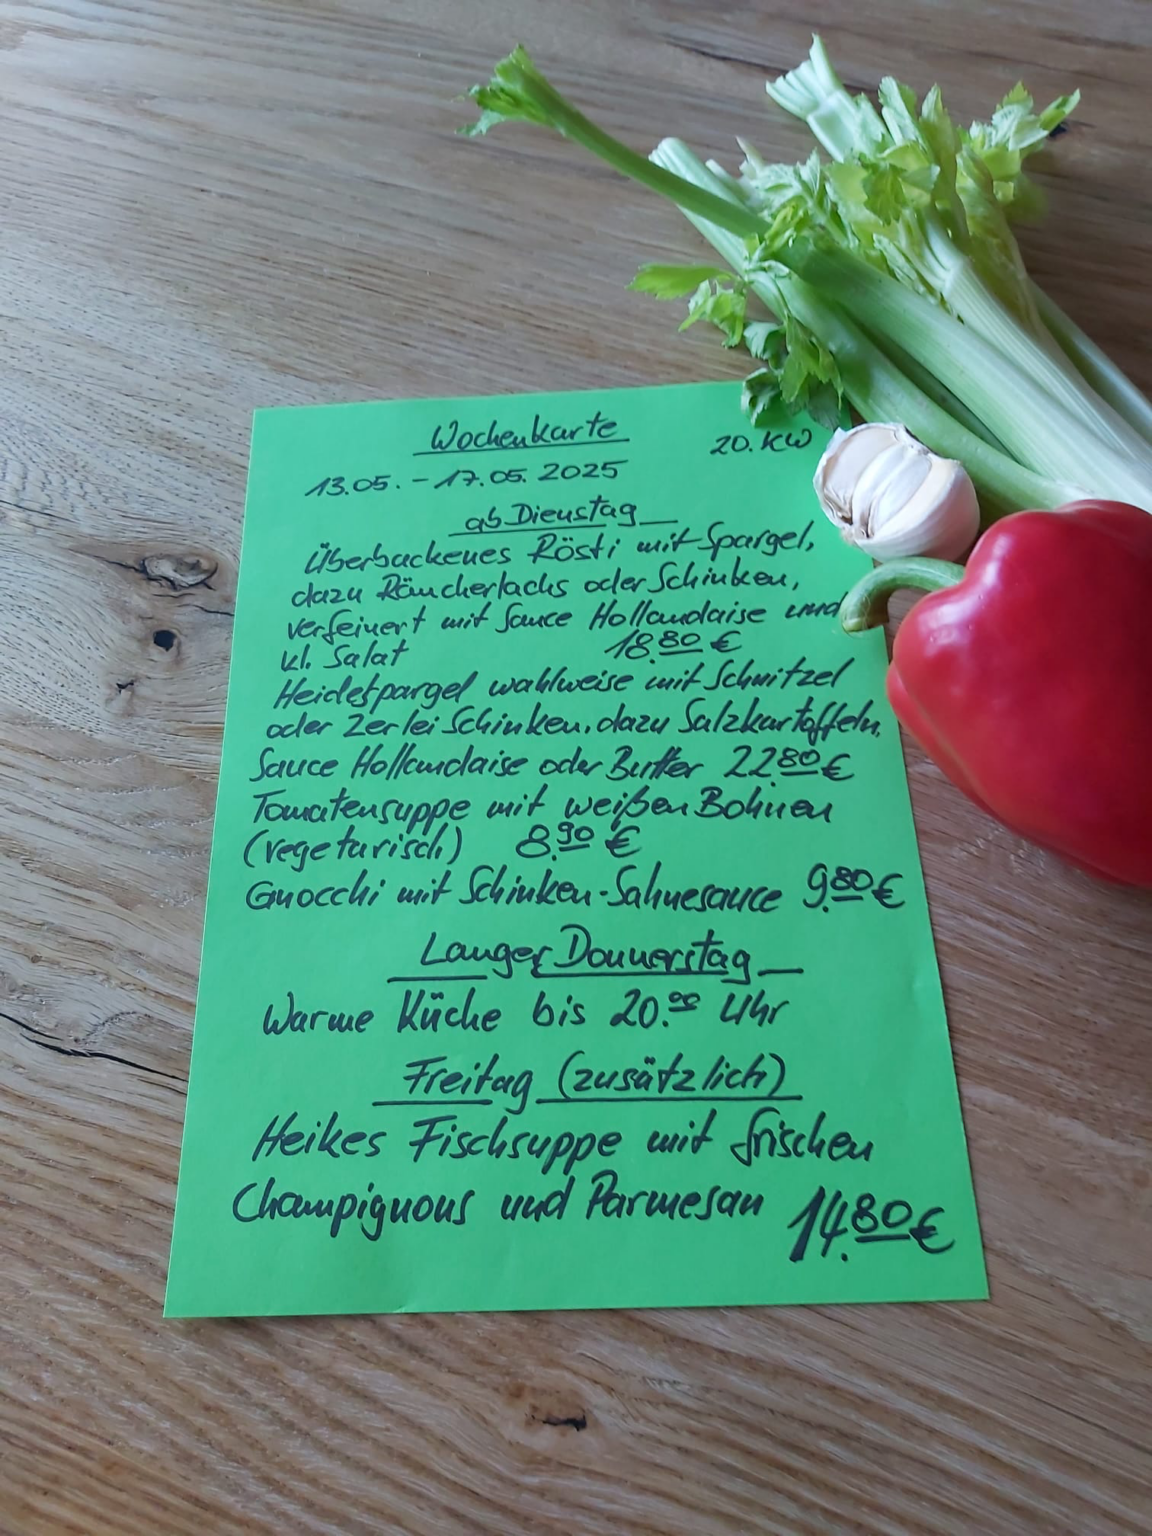 Wochenkarte
20. KW
13.05. - 17.05. 2025
ab Dienstag
Überbackenes Rösti mit Spargel,
dazu Räucherlachs oder Schinken,
verfeinert mit Sauce Hollandaise und
kl. Salat 18.80 €
Heidespargel wahlweise mit Schnitzel
oder 2erlei Schinken, dazu Salzkartoffeln,
Sauce Hollandaise oder Butter 22.80 €
Tomatensuppe mit weißen Bohnen
(vegetarisch) 8.90 €
Gnocchi mit Schinken-Sahnesauce 9.80 €
Langer Donnerstag
Warme Küche bis 20.00 Uhr
Freitag (zusätzlich)
Heikes Fischsuppe mit frischen
Champignons und Parmesan 14.80 €